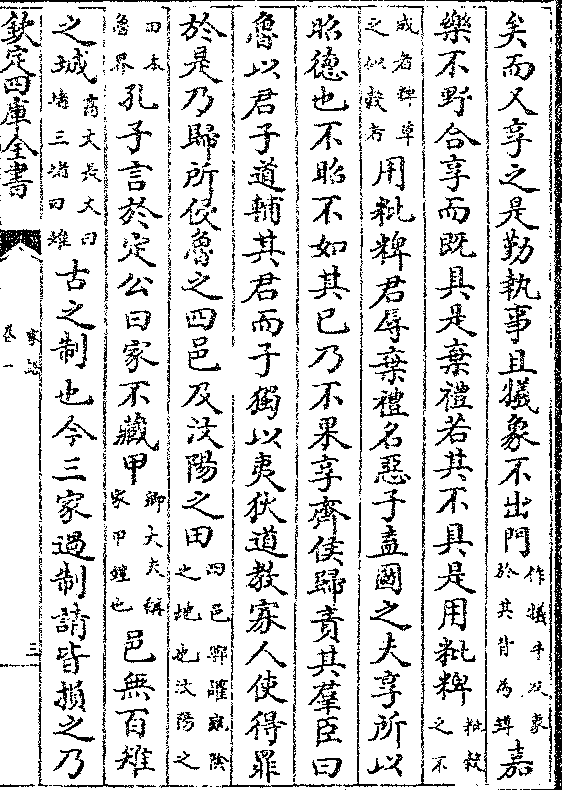 矣而又享之是勤執事且犧象不出門作犧牛及象於其背為罇嘉
樂不野合享而既具是棄禮若其不具是用粃粺粃穀之不
成者粺草之似穀者用粃粺君辱棄禮名惡子盍圖之夫享所以
昭德也不昭不如其已乃不果享齊侯歸責其羣臣曰
魯以君子道輔其君而子獨以夷狄道教寡人使得罪
於是乃歸所侵魯之四邑及汶陽之田四邑鄆讙龜隂之地也汶陽之
田本魯界孔子言於定公曰家不藏甲卿大夫稱家甲鎧也邑無百雉
之城高丈長丈曰堵三堵曰雉古之制也今三家過制請皆損之乃
欽定四庫全書
家語
卷一
三